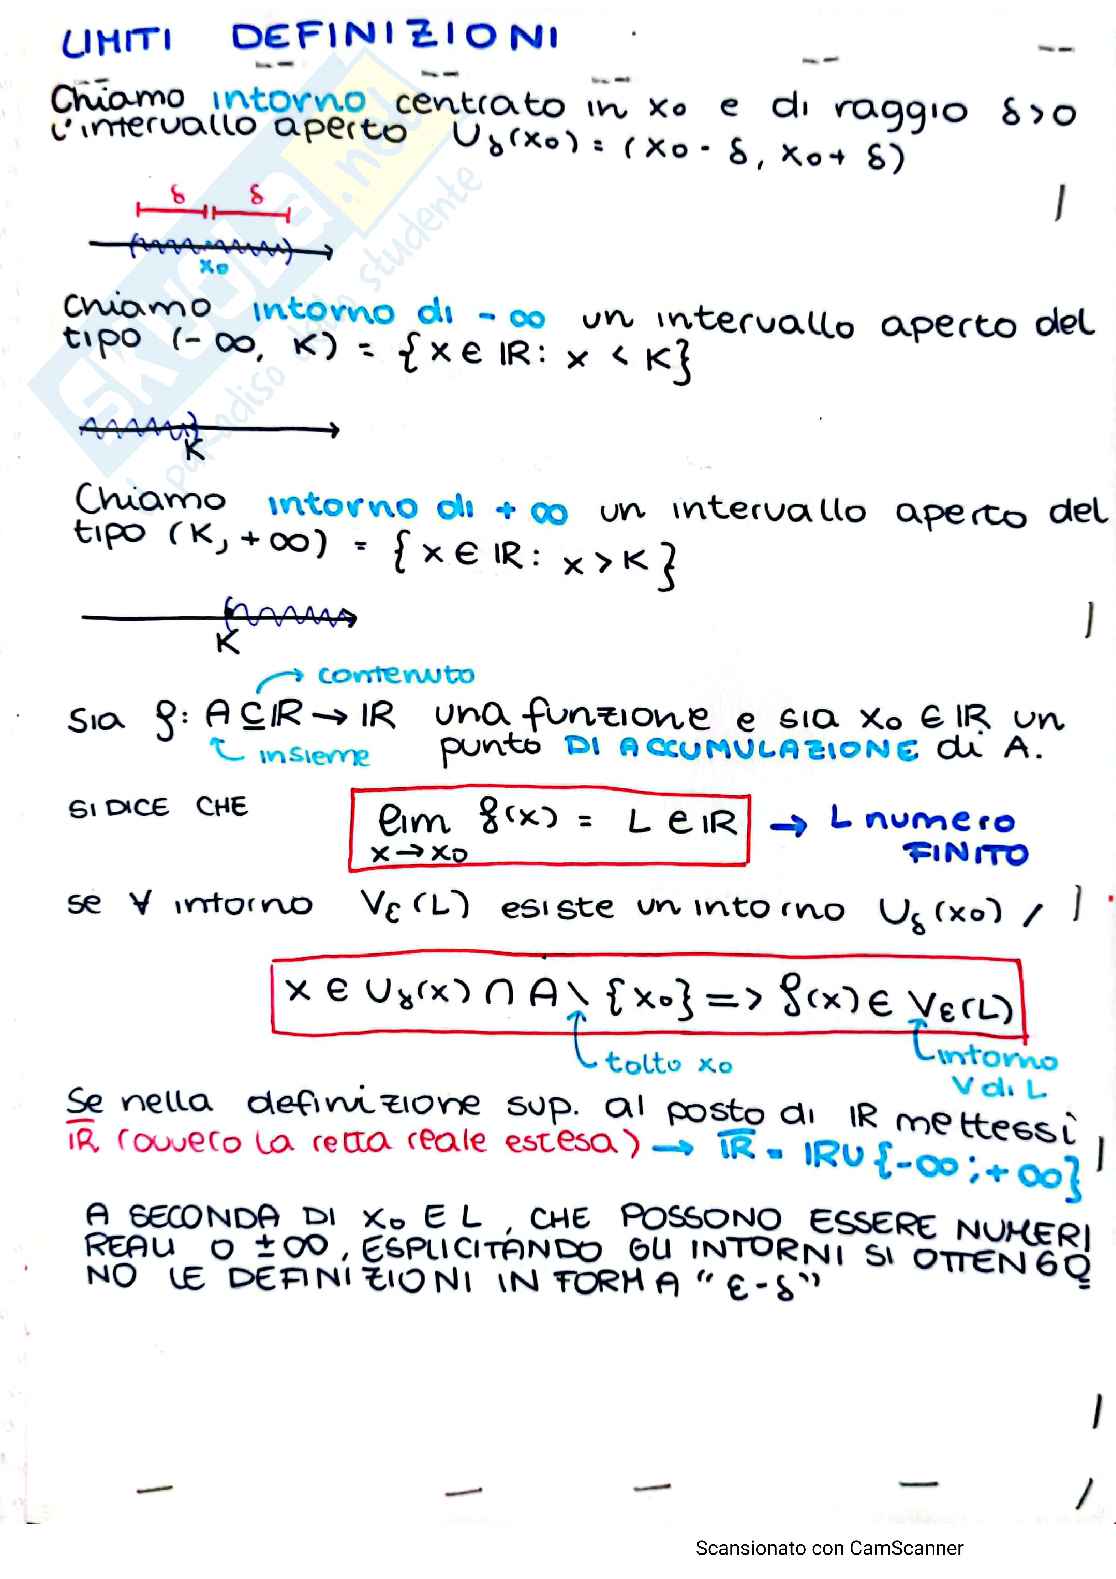 LIMITI DEFINIZIONI
Chiamo intorno centrato in x0 e di raggio δ>0
l'intervallo aperto Uδ(x0) = (x0 - δ, x0 + δ)
δ δ
x0
Chiamo intorno di - ∞ un intervallo aperto del
tipo (- ∞, K) = {x ∈ IR: x < K}
K
Chiamo intorno di + ∞ un intervallo aperto del
tipo (K, +∞) = {x ∈ IR: x > K}
K
contenuto
Sia f: A ⊆ IR → IR una funzione e sia x0 ∈ IR un
insieme punto DI ACCUMULAZIONE di A.
SI DICE CHE lim f(x) = L ∈ IR → L numero
x → x0 FINITO
se ∀ intorno Vε(L) esiste un intorno Uδ(x0) /
x ∈ Uδ(x) ∩ A \ {x0} => f(x) ∈ Vε(L)
tolto x0 intorno
V di L
Se nella definizione sup. al posto di IR mettessi
I̅R̅ (ovvero la retta reale estesa) → I̅R̅ = IR ∪ {-∞; +∞}
A SECONDA DI x0 E L, CHE POSSONO ESSERE NUMERI
REALI O ±∞, ESPLICITANDO GLI INTORNI SI OTTENGO
NO LE DEFINIZIONI IN FORMA "ε-δ"
Scansionato con CamScanner
SKUOLA.net
il paradiso dello studente